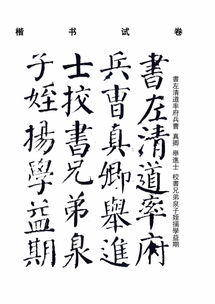 楷书试卷
書左清道率府
兵曹真卿舉進
士挍書兄弟泉
子姪揚學益期
書左清道率府兵曹 真卿 舉進士 校書兄弟泉子姪揚學益期